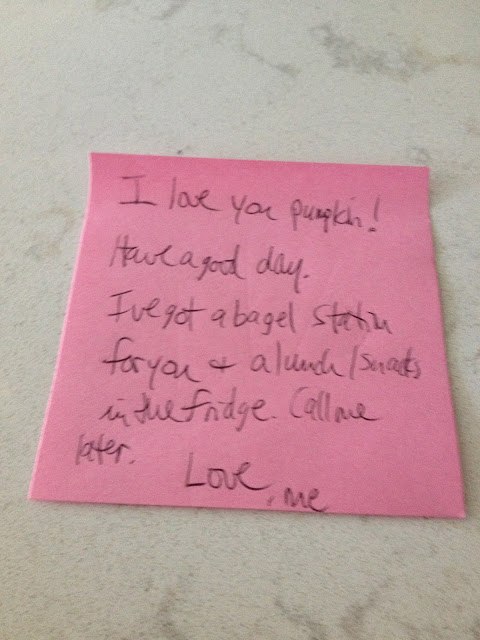 I love you pumpkin!
Have a good day.
I've got a bagel station
for you + a lunch/snacks
in the fridge. Call me
later.
Love, me